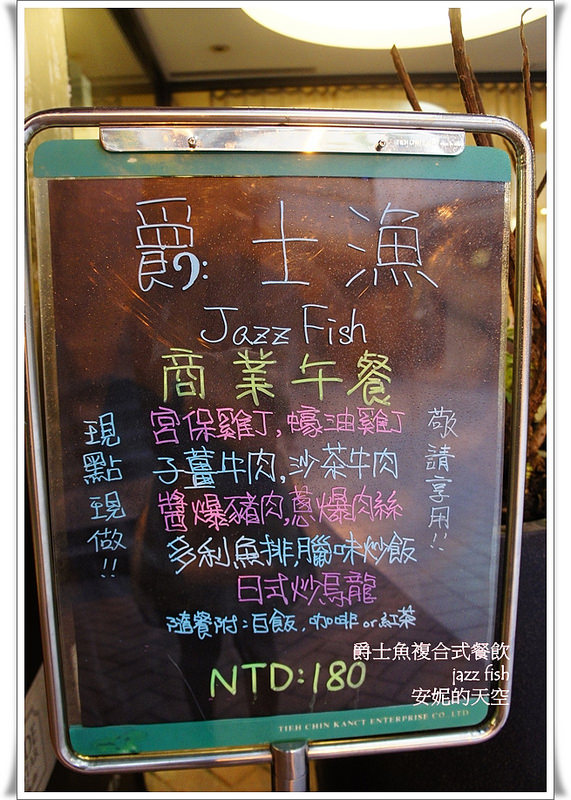 爵士漁
Jazz Fish
商業午餐
宮保雞丁,蠔油雞丁
子薑牛肉,沙茶牛肉
醬爆豬肉,蔥爆肉絲
多利魚排,臘味炒飯
日式炒烏龍
隨餐附:白飯,咖啡or紅茶
NTD:180
現點現做!!
敬請享用!!
TIEH CHIN KANCT ENTERPRISE CO. LTD
爵士魚複合式餐飲
jazz fish
安妮的天空